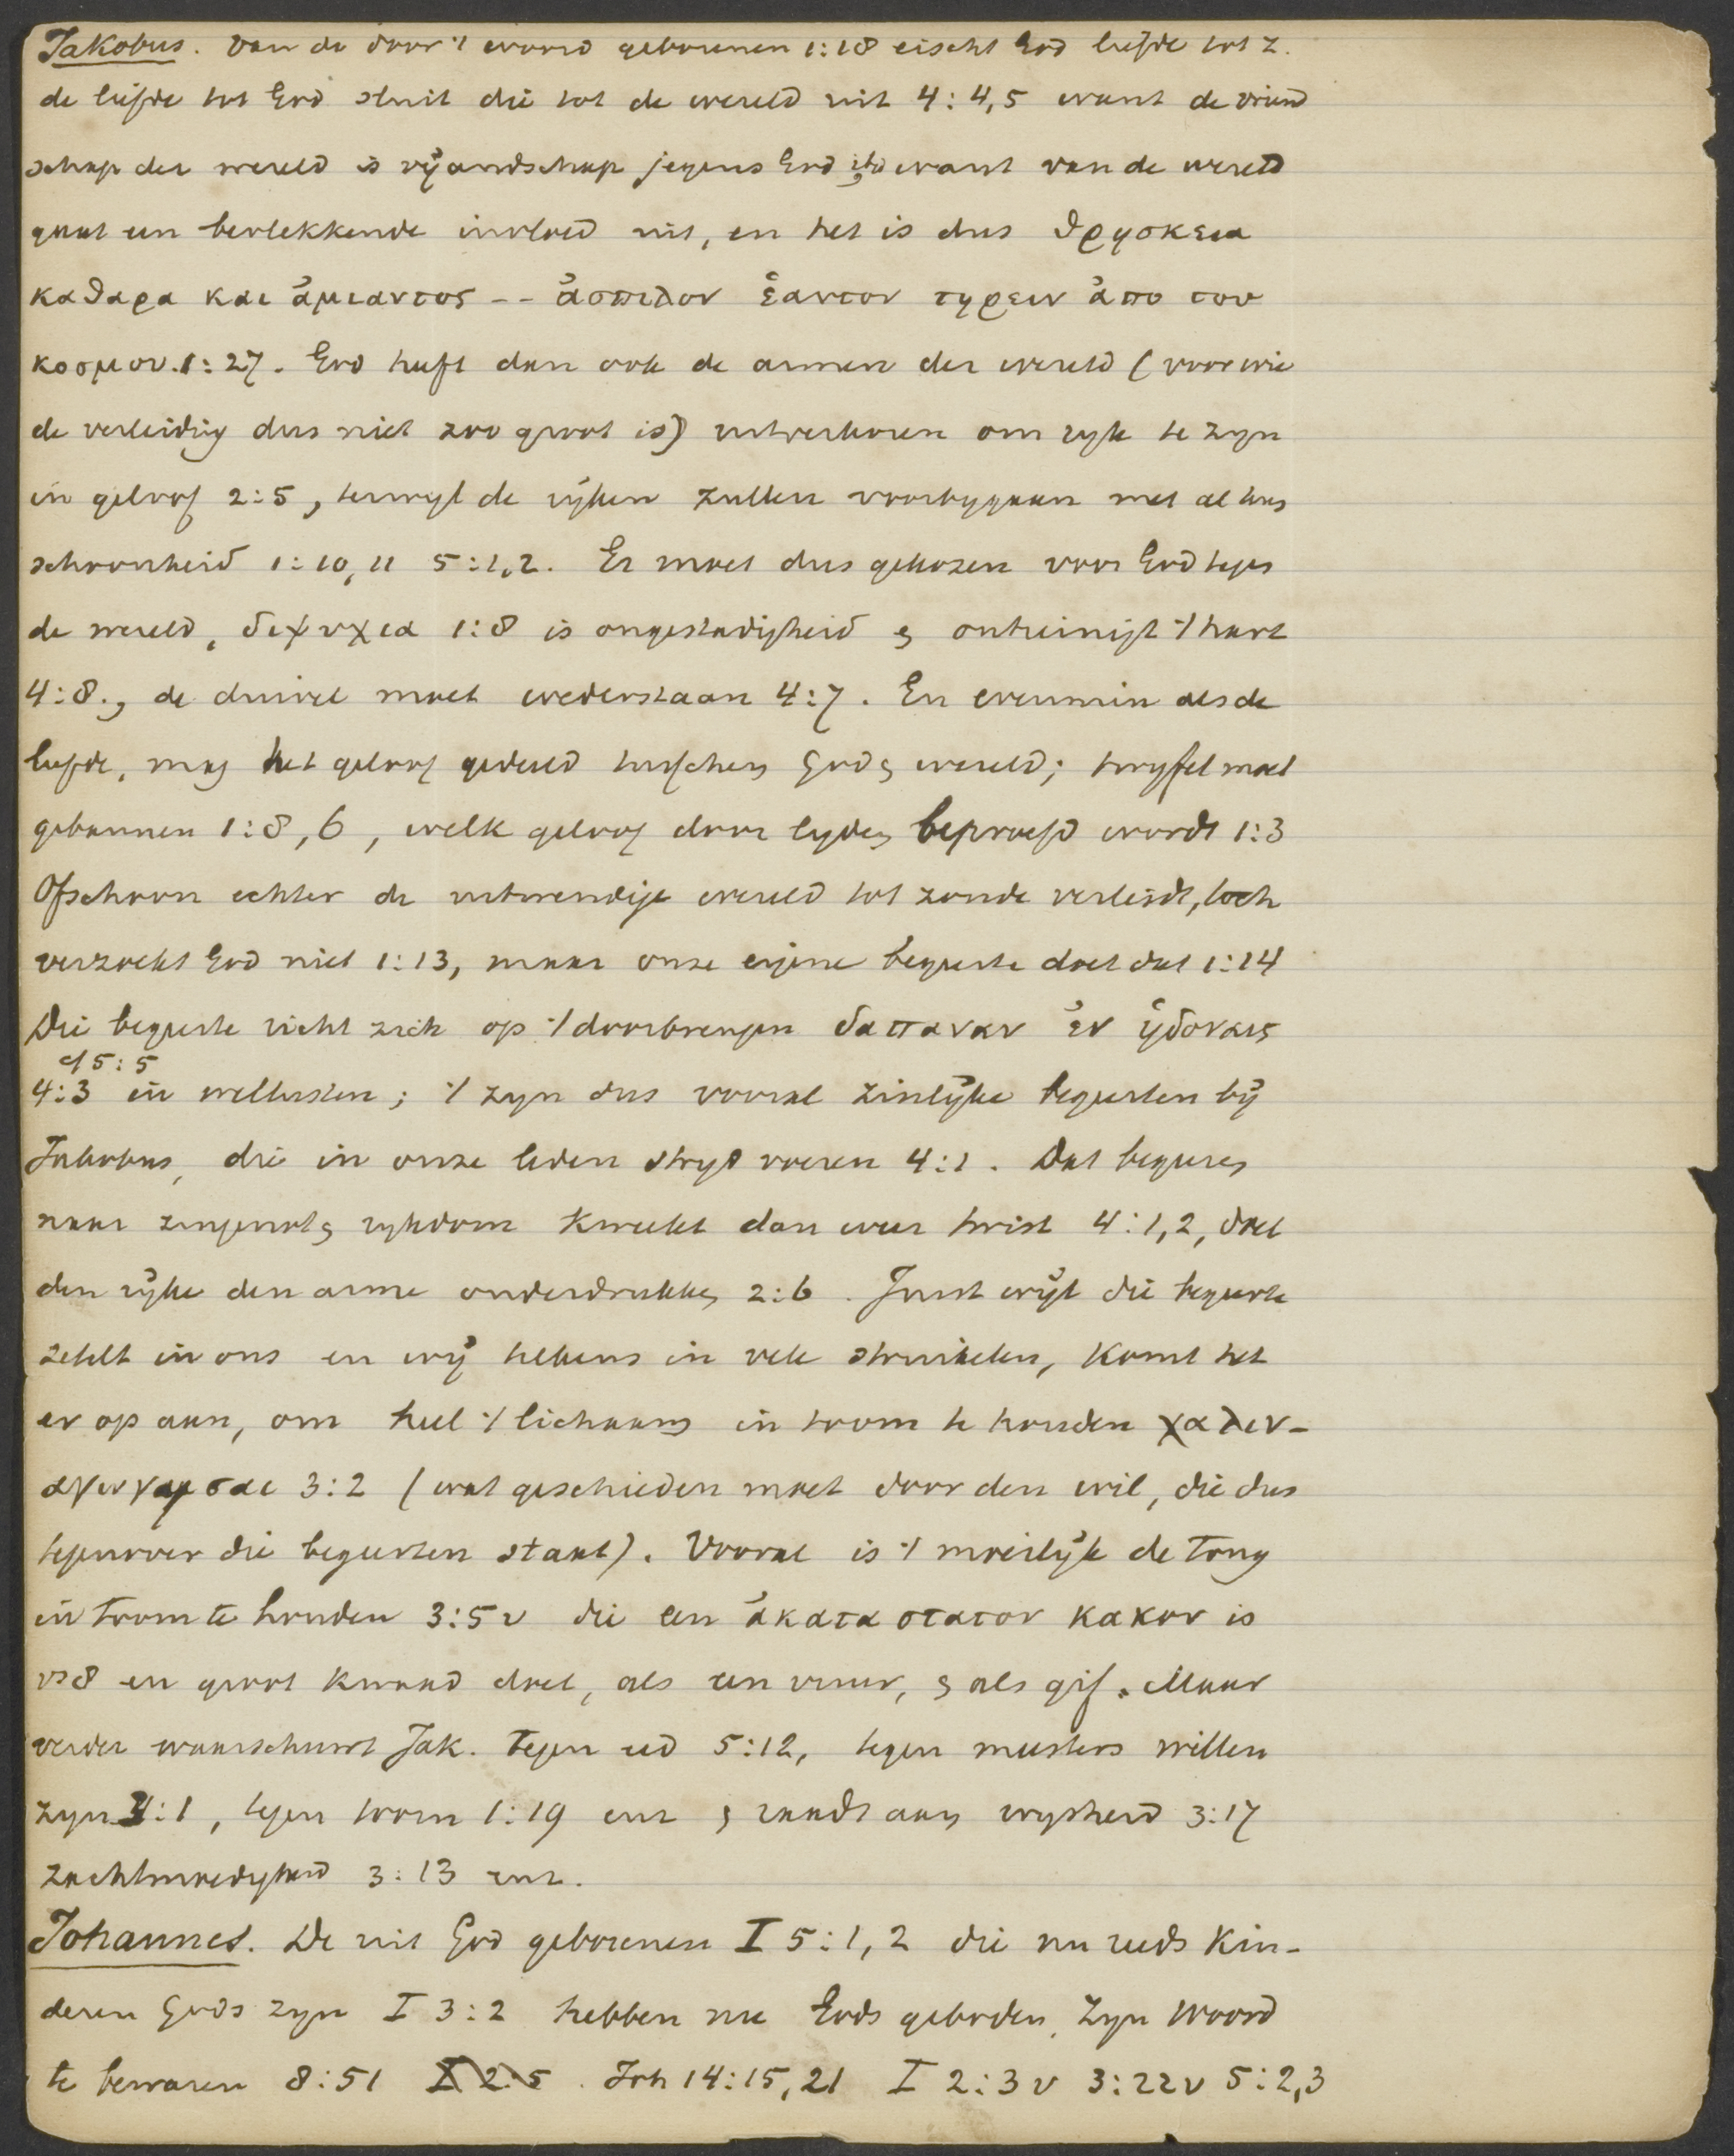 Jakobus. Van de door 't woord geborenen 1:18 eischt God liefde tot Z.
de liefde tot God sluit die tot de wereld uit 4:4,5 want de vriend
schap der wereld is vijandschap jegens God, want van de wereld
gaat een bevlekkende invloed uit, en het is dus θρησκεια
καθαρα και ἀμιαντος -- ἀσπιλον ἑαυτον τηρειν ἀπο του
κοσμου. 1:27. God heeft dan ook de armen der wereld (voor wie
de verleiding dus niet zoo groot is) uitverkoren om ryk te zyn
in geloof 2:5, terwyl de rijken zullen voorbygaan met al hun
schoonheid 1:10,11 5:1,2. Er moet dus gekozen voor God tegen
de wereld, διψυχια 1:8 is ongestadigheid en ontreinigt 't hart
4:8., de duivel moet wederstaan 4:7. En evenmin als de
liefde, mag het geloof gedeeld tusschen God en wereld; twyfel moet
gebannen 1:8,6, welk geloof door lyden beproefd wordt 1:3
Ofschoon echter de uitwendige wereld tot zonde verleidt, toch
verzoekt God niet 1:13, maar onze eigene begeerte doet dat 1:14
Die begeerte richt zich op 't doorbrengen δαπαναν ἐν ἡδοναις
cf 5:5
4:3 in wellusten; 't zyn dus vooral zinlijke begeerten bij
Jakobus, die in onze leden stryd voeren 4:1. Dat begeeren
naar zingenot en rykdom kweekt dan weer twist 4:1,2, doet
den rijke den arme onderdrukken 2:6. Juist wijl die begeerte
zetelt in ons en wij telkens in vele struikelen, komt het
er op aan, om heel 't lichaam in toom te houden χαλιν-
αγωγησαι 3:2 (wat geschieden moet door den wil, die dus
tegenover die begeerten staat). Vooral is 't moeilijk de tong
in toom te houden 3:5v die een ἀκαταστατον κακον is
vs 8 en groot kwaad doet, als een vuur, en als gif. Maar
verder waarschuwt Jak. tegen eed 5:12, tegen meesters willen
zyn 3:1, tegen toorn 1:19 enz en raadt aan wysheid 3:17
zachtmoedigheid 3:13 enz.
Johannes. De uit God geborenen I 5:1,2 die nu reeds kin-
deren Gods zyn I 3:2 hebben nu Gods geboden, Zyn woord
te bewaren 8:51 I 2:5. Joh 14:15,21 I 2:3v 3:22v 5:2,3